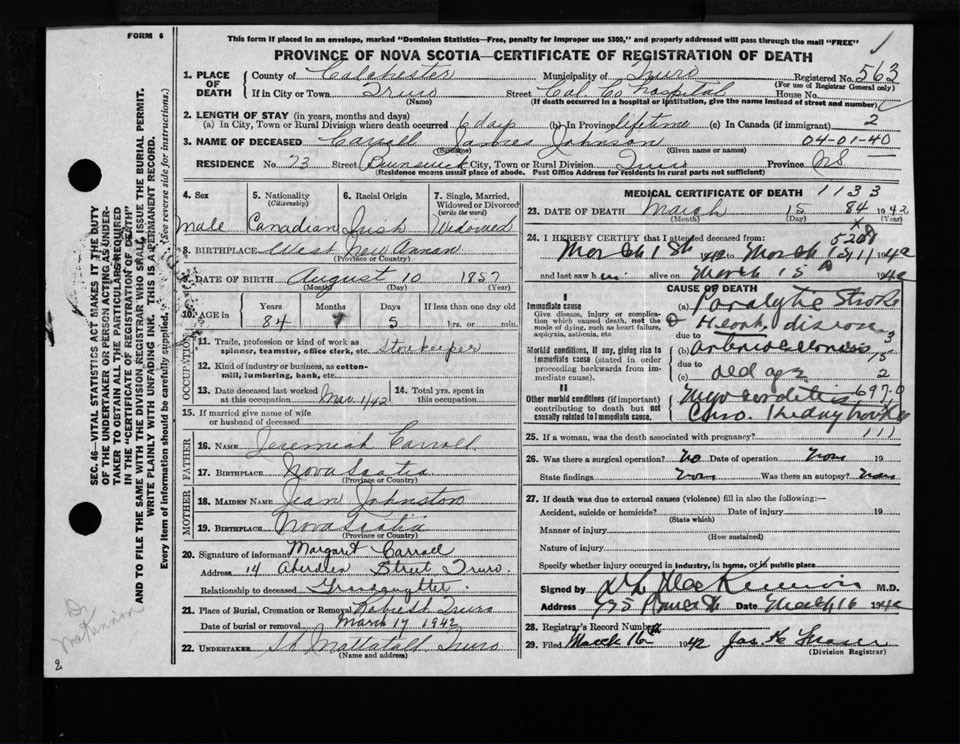 FORM 6
This form if placed in an envelope, marked "Dominion Statistics—Free, penalty for improper use $300," and properly addressed will pass through the mail "FREE"
PROVINCE OF NOVA SCOTIA—CERTIFICATE OF REGISTRATION OF DEATH
1. PLACE OF DEATH
County of Colchester Municipality of Truro Registered No. 563
(For use of Registrar General only)
If in City or Town Truro Street Col. Co Hospital House No.
(Name) (If death occurred in a hospital or institution, give the name instead of street and number)
2. LENGTH OF STAY (in years, months and days) 2
(a) In City, Town or Rural Division where death occurred 6 days (b) In Province lifetime (c) In Canada (if immigrant)
3. NAME OF DECEASED Carroll James Johnson 04-01-40
(Surname) (Given name or names)
RESIDENCE No. 73 Street Brunswick City, Town or Rural Division Truro Province NS
(Residence means usual place of abode. Post Office Address for residents in rural parts not sufficient)
4. Sex
Male
5. Nationality
(Citizenship)
Canadian
6. Racial Origin
Irish
7. Single, Married, Widowed or Divorced
(write the word)
Widowed
8. BIRTHPLACE West New Annan
(Province or Country)
9. DATE OF BIRTH August 10 1857
(Month) (Day) (Year)
10. AGE in Years Months Days If less than one day old
84 5 hrs. or min.
OCCUPATION
11. Trade, profession or kind of work as spinner, teamster, office clerk, etc. Storekeeper
12. Kind of industry or business, as cotton-mill, lumbering, bank, etc.
13. Date deceased last worked at this occupation Mar 1/42
14. Total yrs. spent in this occupation
15. If married give name of wife or husband of deceased
FATHER
16. NAME Jeremiah Carroll
17. BIRTHPLACE Nova Scotia
(Province or Country)
MOTHER
18. MAIDEN NAME Jean Johnston
19. BIRTHPLACE Nova Scotia
(Province or Country)
20. Signature of informant Margaret Carroll
Address 14 Aberdeen Street Truro.
Relationship to deceased Granddaughter
21. Place of Burial, Cremation or Removal Robie St. Truro
Date of burial or removal March 17 1942
22. UNDERTAKER Mattatall Truro
(Name and address)
MEDICAL CERTIFICATE OF DEATH 1133
23. DATE OF DEATH March 15 84 1942
(Month) (Day) (Year)
24. I HEREBY CERTIFY that I attended deceased from
March 1st 1942 to March 15 1942
and last saw h im alive on March 15 1942
CAUSE OF DEATH
I
Immediate cause
Give disease, injury or complication which caused death, not the mode of dying, such as heart failure, asphyxia, asthenia, etc
(a) Paralytic Stroke
due to Heart disease 3
Morbid conditions, if any, giving rise to immediate cause (stated in order proceeding backwards from immediate cause)
(b) Arteriosclerosis 15
due to
(c) old age 2
II
Other morbid conditions (if important) contributing to death but not causally related to immediate cause.
Myocarditis 697.0
25. If a woman, was the death associated with pregnancy? 111
26. Was there a surgical operation? No Date of operation 19
State findings Was there an autopsy?
27. If death was due to external causes (violence) fill in also the following:—
Accident, suicide or homicide? Date of injury 19
(State which)
Manner of injury
(How sustained)
Nature of injury
Specify whether injury occurred in industry, in home, or in public place
Signed by M.D.
Address Date March 16 1942
28. Registrar's Record Number
29. Filed March 16 1942 Jas. K. Fraser
(Division Registrar)
SEC. 46—VITAL STATISTICS ACT MAKES IT THE DUTY
OF THE UNDERTAKER OR PERSON ACTING AS UNDERTAKER TO OBTAIN ALL THE PARTICULARS REQUIRED
IN THE "CERTIFICATE OF REGISTRATION OF DEATH"
AND TO FILE THE SAME WITH THE DIVISION REGISTRAR WHO SHALL ISSUE THE BURIAL PERMIT.
WRITE PLAINLY WITH UNFADING INK. THIS IS A PERMANENT RECORD.
Every item of information should be carefully supplied. (See reverse side for instructions.)
Dr MacKinnon
2